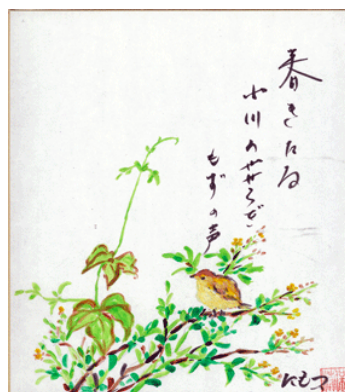 春きたる
小川のせせらぎ
もずの声